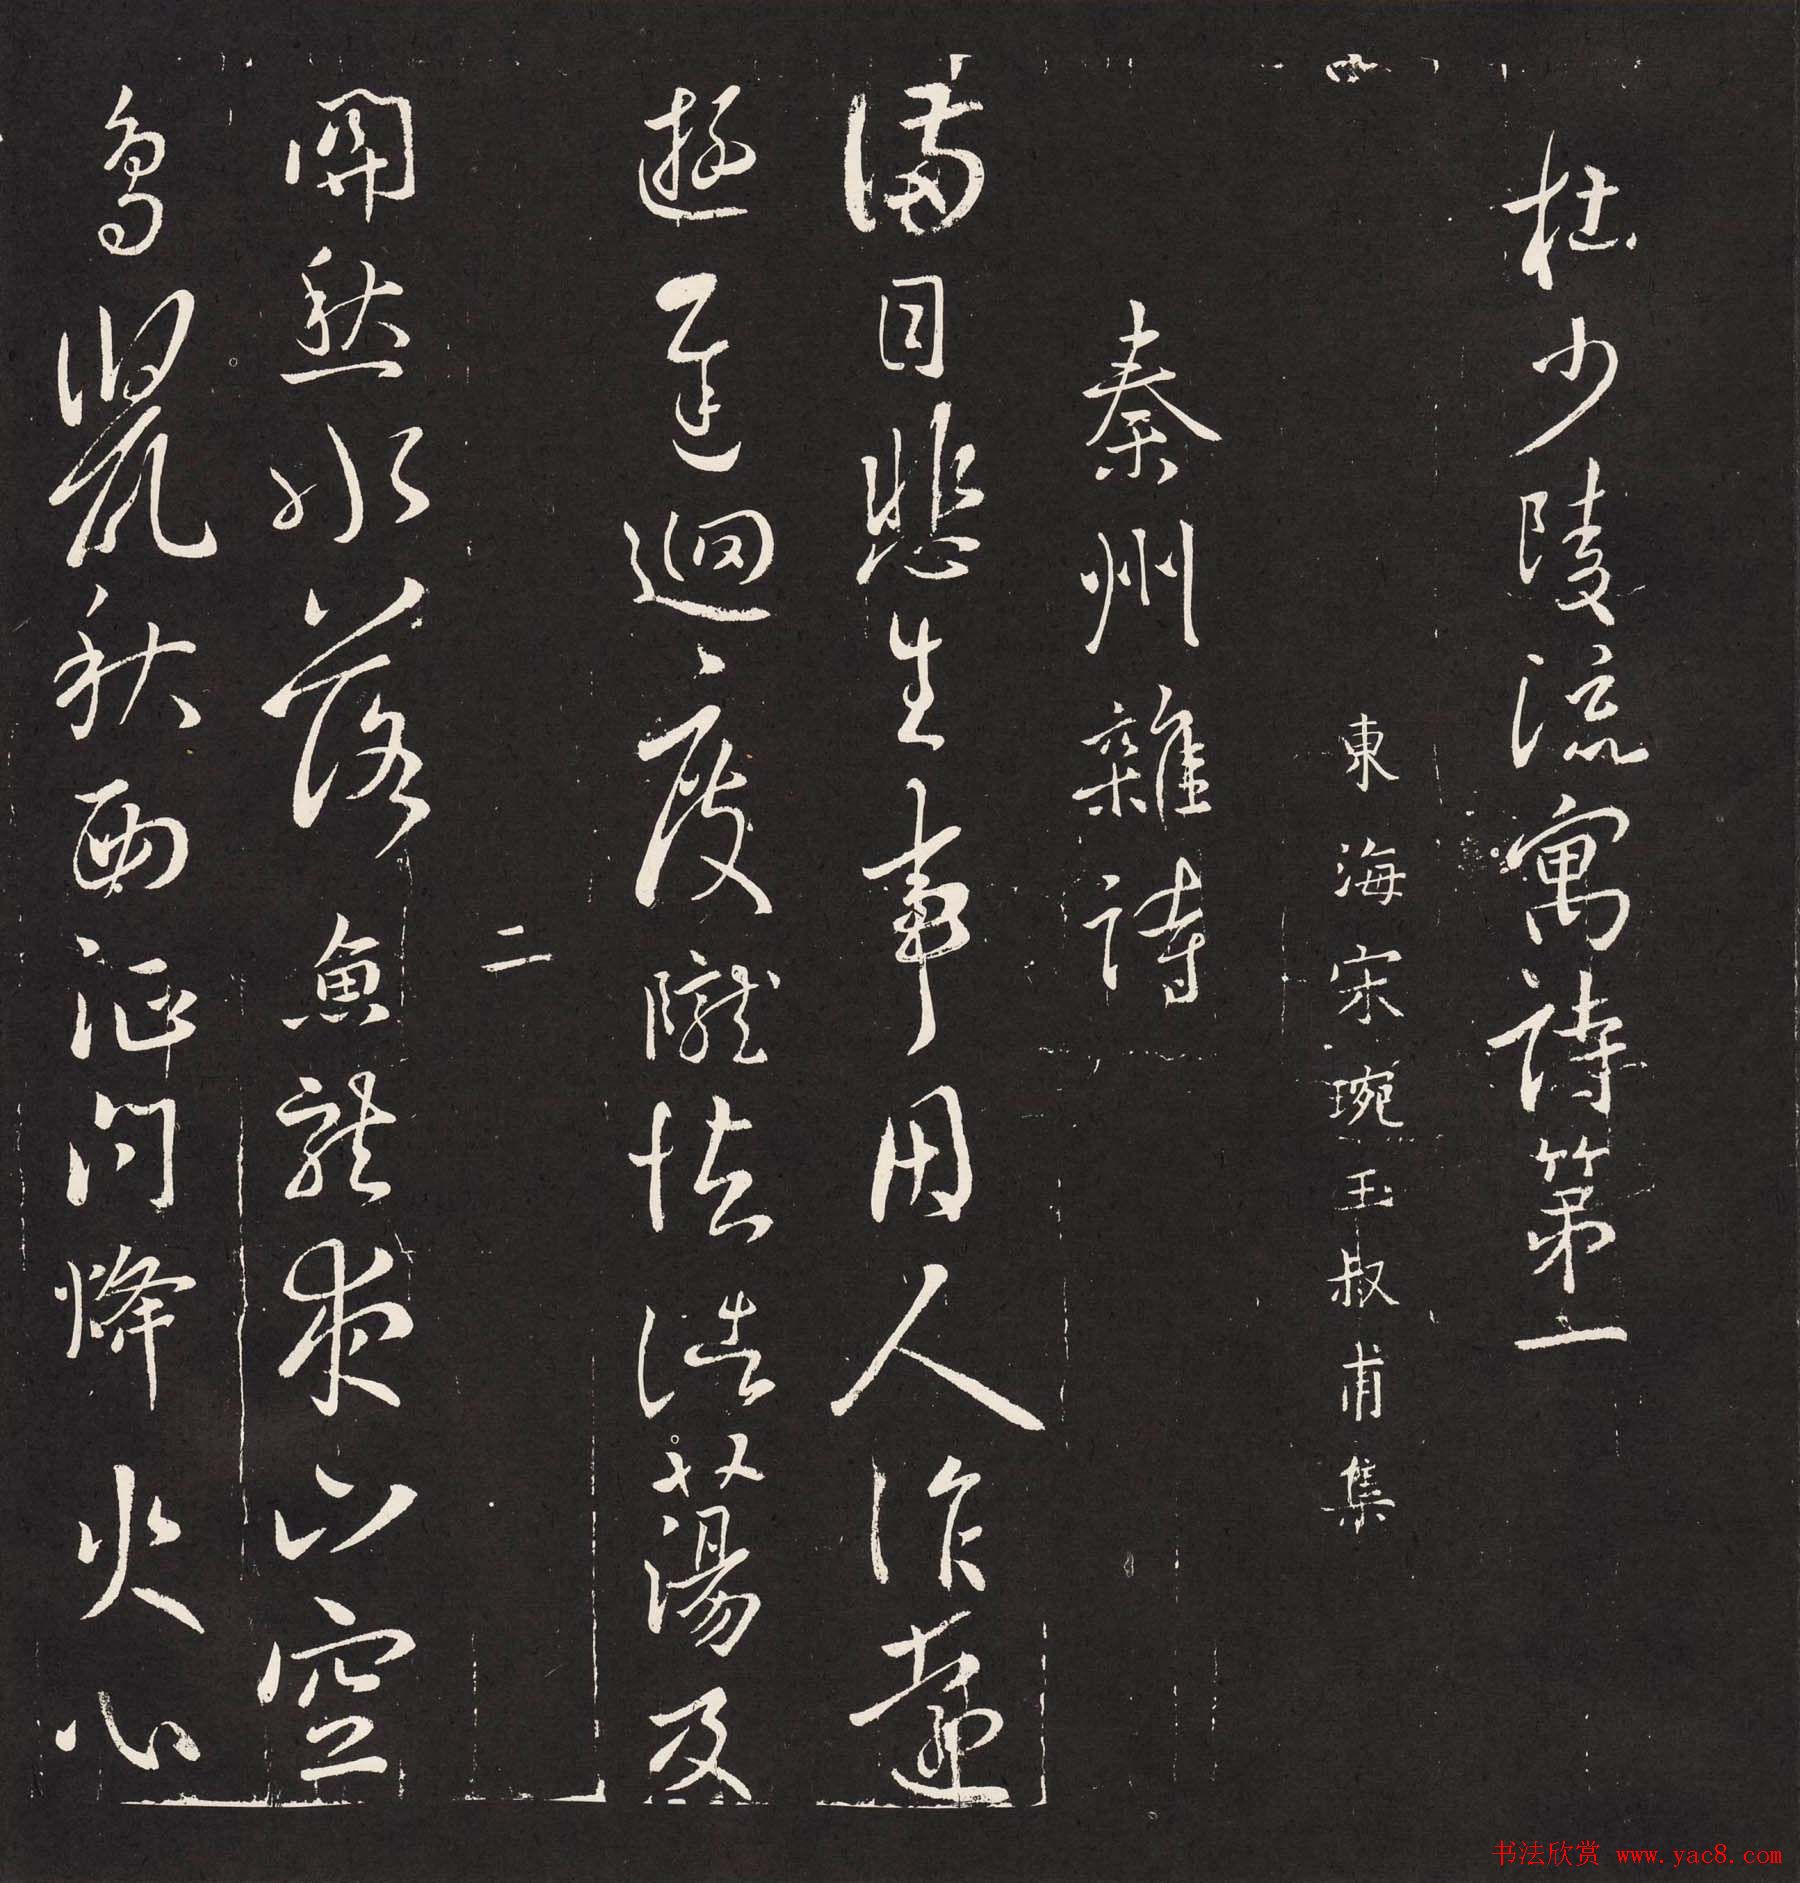 杜少陵流寓詩第一
東海宋琬玉叔甫集
秦州雜詩
滿目悲生事因人作遠
遊遲迴度隴怯浩蕩及
二
關愁水落魚龍夜山空
鳥鼠秋西征問烽火心
书法欣赏 www.yac8.com